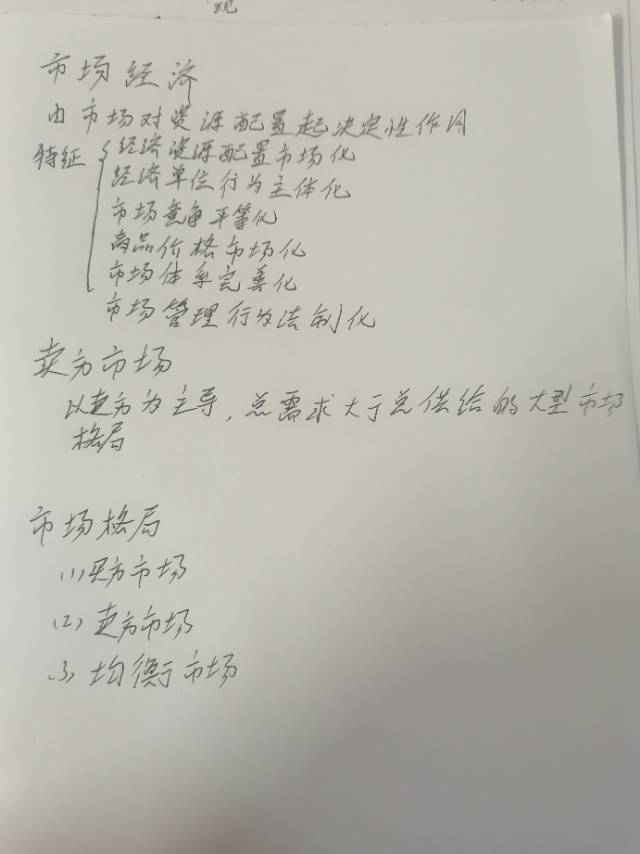 市场经济
由市场对资源配置起决定性作用
特征{经济资源配置市场化
经济单位行为主体化
市场竞争平等化
商品价格市场化
市场体系完善化
市场管理行为法制化
卖方市场
以卖方为主导,总需求大于总供给的大型市场
格局
市场格局
(1)买方市场
(2)卖方市场
(3)均衡市场